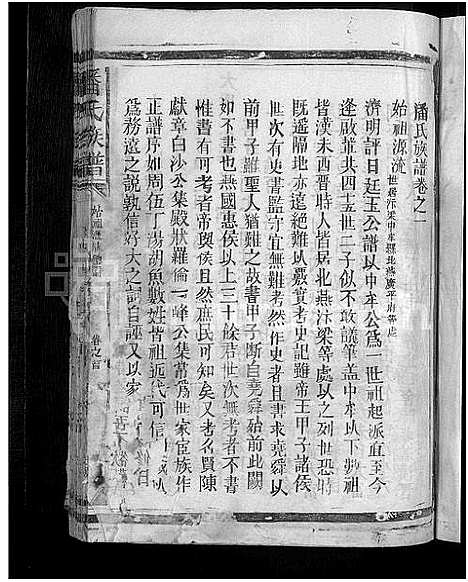 潘氏族譜卷之一
始祖源流 世居汴梁中牟縣北燕廣平府等處
濟明評日廷玉公譜以中牟公爲一世祖起派直至今
逢啟曾共四十五世二子似不敢議筆蓋中牟以下夢祖
皆漢末西晉時人皆居北燕汴梁等處以之列世恐時
既遥隔地亦遠絶難以覈實考史記雖帝王甲子諸侯
世次有史書監守宜無難考然作史者且書求堯舜以
前甲子雖聖人猶難之故書甲子斷自堯舜始前此闕
如不書也燕國惠侯以上三十餘君世次無考者不書
惟書有可考者帝與侯且然庶民可知矣又考名賢陳
獻章白沙公集殿狀羅倫一峰公集常爲世家宦族作
正譜序如周伍丁湯胡魚數姓皆祖近代可信
爲務遠之説孰信好大之詞自誣又以家
潘氏族譜
卷之首